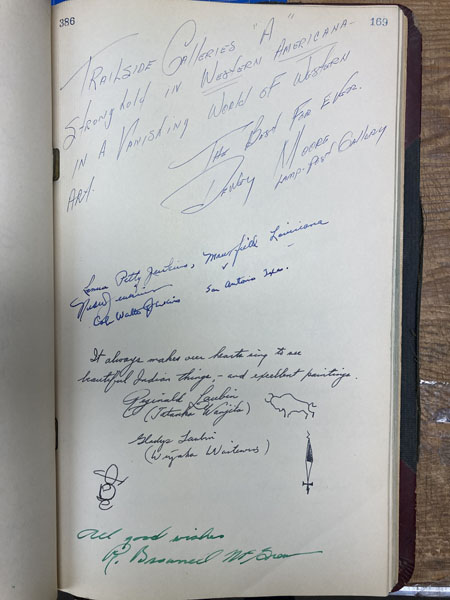 386
169
TRAILSIDE GALLERIES "A"
STRONGHOLD IN WESTERN AMERICANA-
IN A VANISHING WORLD OF WESTERN
ART.
THE BEST FOR EVER.
DENBY MOORE
LAMP-POST GALLERY
Petty Jenkins, Mansfield Louisiana
San Antonio Texas.
Walter Jenkins
It always makes our hearts sing to see
beautiful Indian things, - and excellent paintings.
Reginald Laubin
(Tatanka Wanjila)
Gladys Laubin
(Wiyaka Wastewin)
All good wishes
R. Brownell McGrew